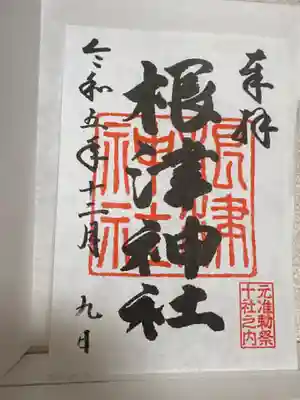 奉拝
根津神社
根津神社
元准勅祭
十社之内
令和五年十二月九日